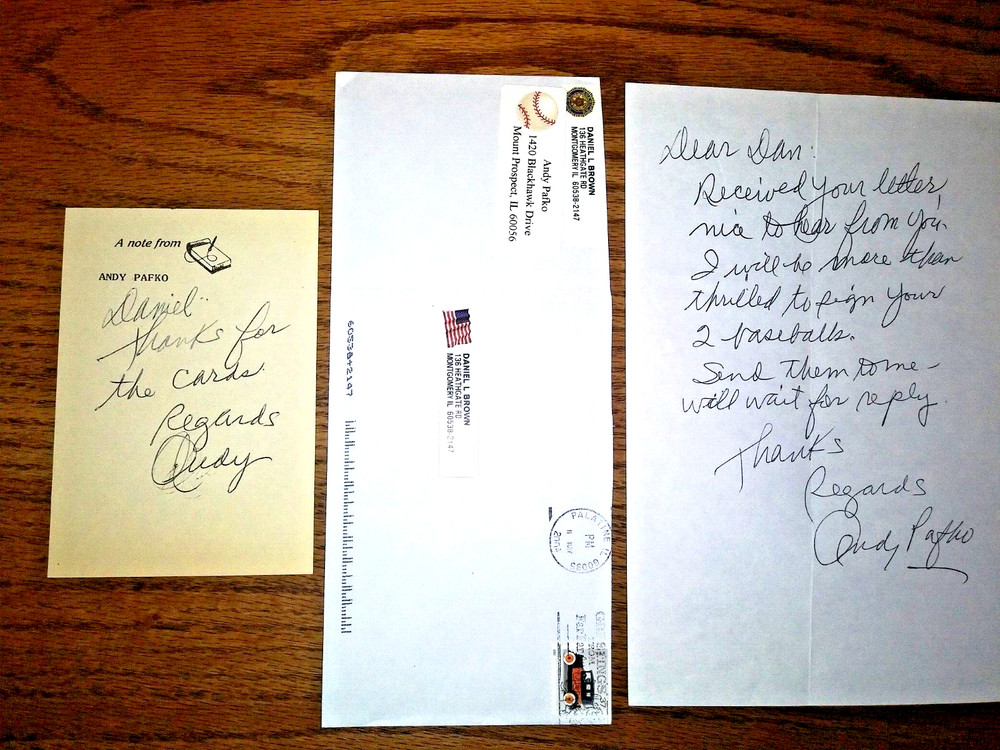 A note from
ANDY PAFKO
Daniel:
Thanks for
the cards.
Regards
Andy
DANIEL L BROWN
136 HEATHGATE RD
MONTGOMERY IL 60538-2147
Andy Pafko
1420 Blackhawk Drive
Mount Prospect, IL 60056
DANIEL L BROWN
136 HEATHGATE RD
MONTGOMERY IL 60538-2147
60538+2147
PALATINE IL
PM
60095
Dear Dan:
Received your letter,
nice to hear from you.
I will be more than
thrilled to sign your
2 baseballs.
Send them to me –
will wait for reply.
Thanks
Regards
Andy Pafko